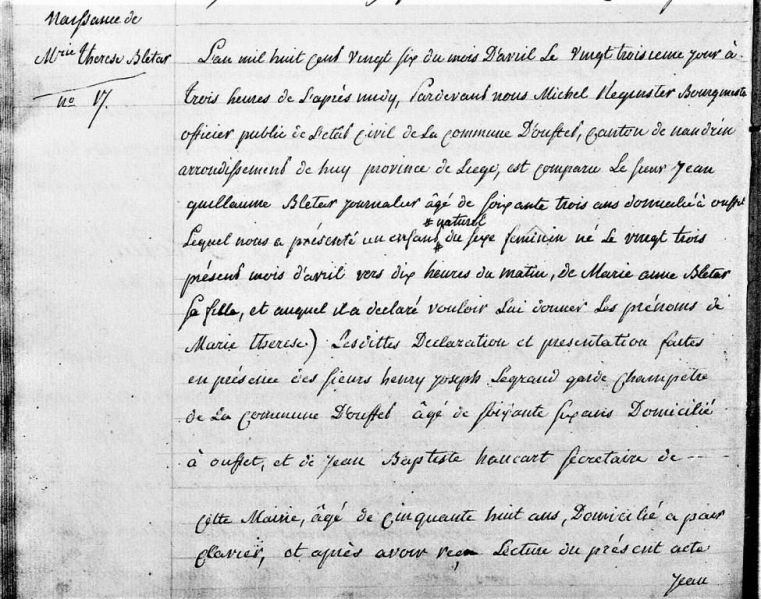 Naissance de
Mrie therese Bletar
no 17.
L'an mil huit cent vingt six du mois D'avril Le vingt troisieme jour à
trois heures de L'après midy, Pardevant nous Michel Bourgmestre
officier public de L'etat Civil de La Commune D'ouffet, Canton de nandrin
arrondissement de huy province de Liege, est Comparu Le sieur Jean
guillaume Bletar journalier âgé de soixante trois ans domicilié à ouffet
* naturel
Lequel nous a présenté un enfant * du sexe féminin né Le vingt trois
présent mois d'avril vers dix heures du matin, de Marie anne Bletar
Sa fille, et auquel il a declaré vouloir Lui donner Les prénoms de
Marie therese) Lesdittes Declaration et presentation faites
en présence des sieurs henry Joseph Legrand garde Champêtre
de La Commune D'ouffet âgé de soixante six ans Domicilié
à ouffet, et de Jean Baptiste hancart secretaire de --
Cette Mairie, âgé de Cinquante huit ans, Domicilié a pair
Clavier, et après avoir reçu Lecture du présent acte
Jean